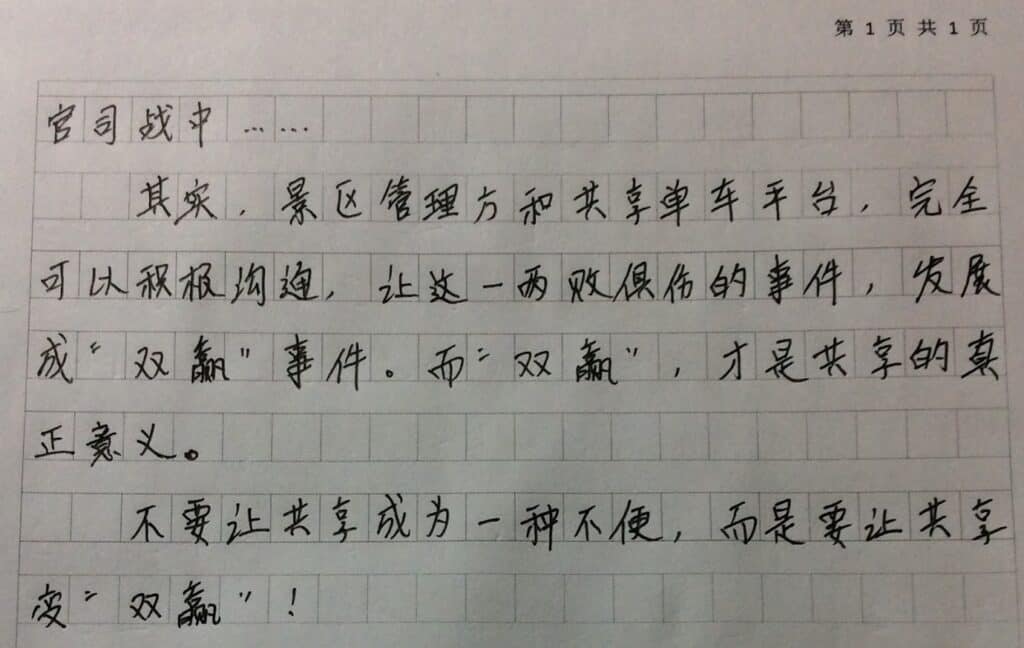 第 1 页 共 1 页
官司战中……
其实，景区管理方和共享单车平台，完全
可以积极沟通，让这一两败俱伤的事件，发展
成“双赢”事件。而“双赢”，才是共享的真
正意义。
不要让共享成为一种不便，而是要让共享
变“双赢”！